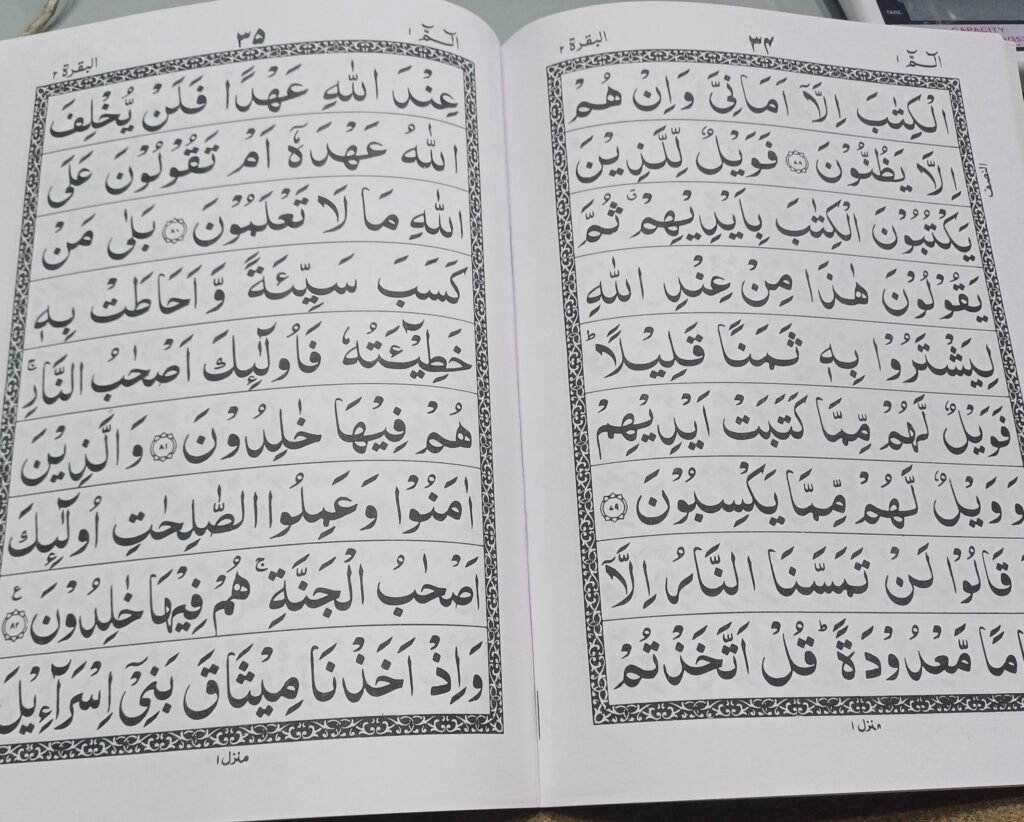 البقرة ٢
٣٤
الٓمّٓ ١
الْكِتٰبَ اِلَّاۤ اَمَانِیَّ وَاِنْ هُمْ
اِلَّا یَظُنُّوْنَ ۝۷۸ فَوَیْلٌ لِّلَّذِیْنَ
یَكْتُبُوْنَ الْكِتٰبَ بِاَیْدِیْهِمْ ۗ ثُمَّ
یَقُوْلُوْنَ هٰذَا مِنْ عِنْدِ اللّٰهِ
لِیَشْتَرُوْا بِهٖ ثَمَنًا قَلِیْلًا ؕ
فَوَیْلٌ لَّهُمْ مِّمَّا كَتَبَتْ اَیْدِیْهِمْ
وَ وَیْلٌ لَّهُمْ مِّمَّا یَكْسِبُوْنَ ۝۷۹
قَالُوْا لَنْ تَمَسَّنَا النَّارُ اِلَّاۤ
امًا مَّعْدُوْدَةً ؕ قُلْ اَتَّخَذْتُمْ
النصف
منزل ١
البقرة ٢
٣٥
الٓمّٓ ١
عِنْدَ اللّٰهِ عَهْدًا فَلَنْ یُّخْلِفَ
اللّٰهُ عَهْدَهٗۤ اَمْ تَقُوْلُوْنَ عَلَی
اللّٰهِ مَا لَا تَعْلَمُوْنَ ۝۸۰ بَلٰی مَنْ
كَسَبَ سَیِّئَةً وَّ اَحَاطَتْ بِهٖ
خَطِیْٓـَٔتُهٗ فَاُولٰٓئِكَ اَصْحٰبُ النَّارِ ۚ
هُمْ فِیْهَا خٰلِدُوْنَ ۝۸۱ وَالَّذِیْنَ
اٰمَنُوْا وَعَمِلُوا الصّٰلِحٰتِ اُولٰٓئِكَ
اَصْحٰبُ الْجَنَّةِ ۚ هُمْ فِیْهَا خٰلِدُوْنَ ۝۸۲ ع
وَاِذْ اَخَذْنَا مِیْثَاقَ بَنِیْۤ اِسْرَآءِیْلَ
منزل ١
TARE
CAPACITY